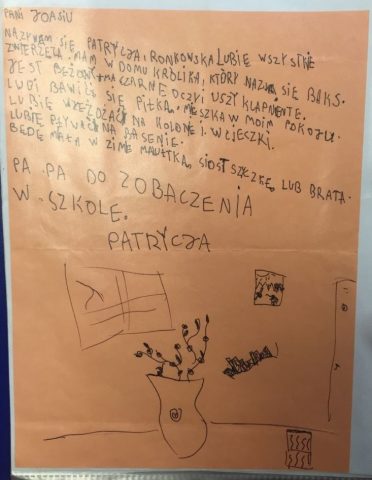 PANI JOASIU
NAZYWAM SIĘ PATRYCJA RONKOWSKA LUBIĘ WSZYSTKIE
ZWIERZĘTA. MAM W DOMU KRÓLIKA, KTÓRY NAZWA SIĘ BAKS.
JEST BEŻOWY MA CZARNE OCZY I USZY KLAPNIENTE.
LUBI BAWIĆ SIĘ PIŁKĄ. MIESZKA W MOIM POKOJU.
LUBIE WYEŻDZAĆ NA KOLONE I WYCIECZKI.
LUBIE PŁYWAĆ NA BASENIE.
BEDĘ MAŁA W ZIMĘ MALUTKĄ SIOSTSZYCZKĘ LUB BRATA.
PA PA DO ZOBACZENIA
W SZKOLE.
PATRYCJA